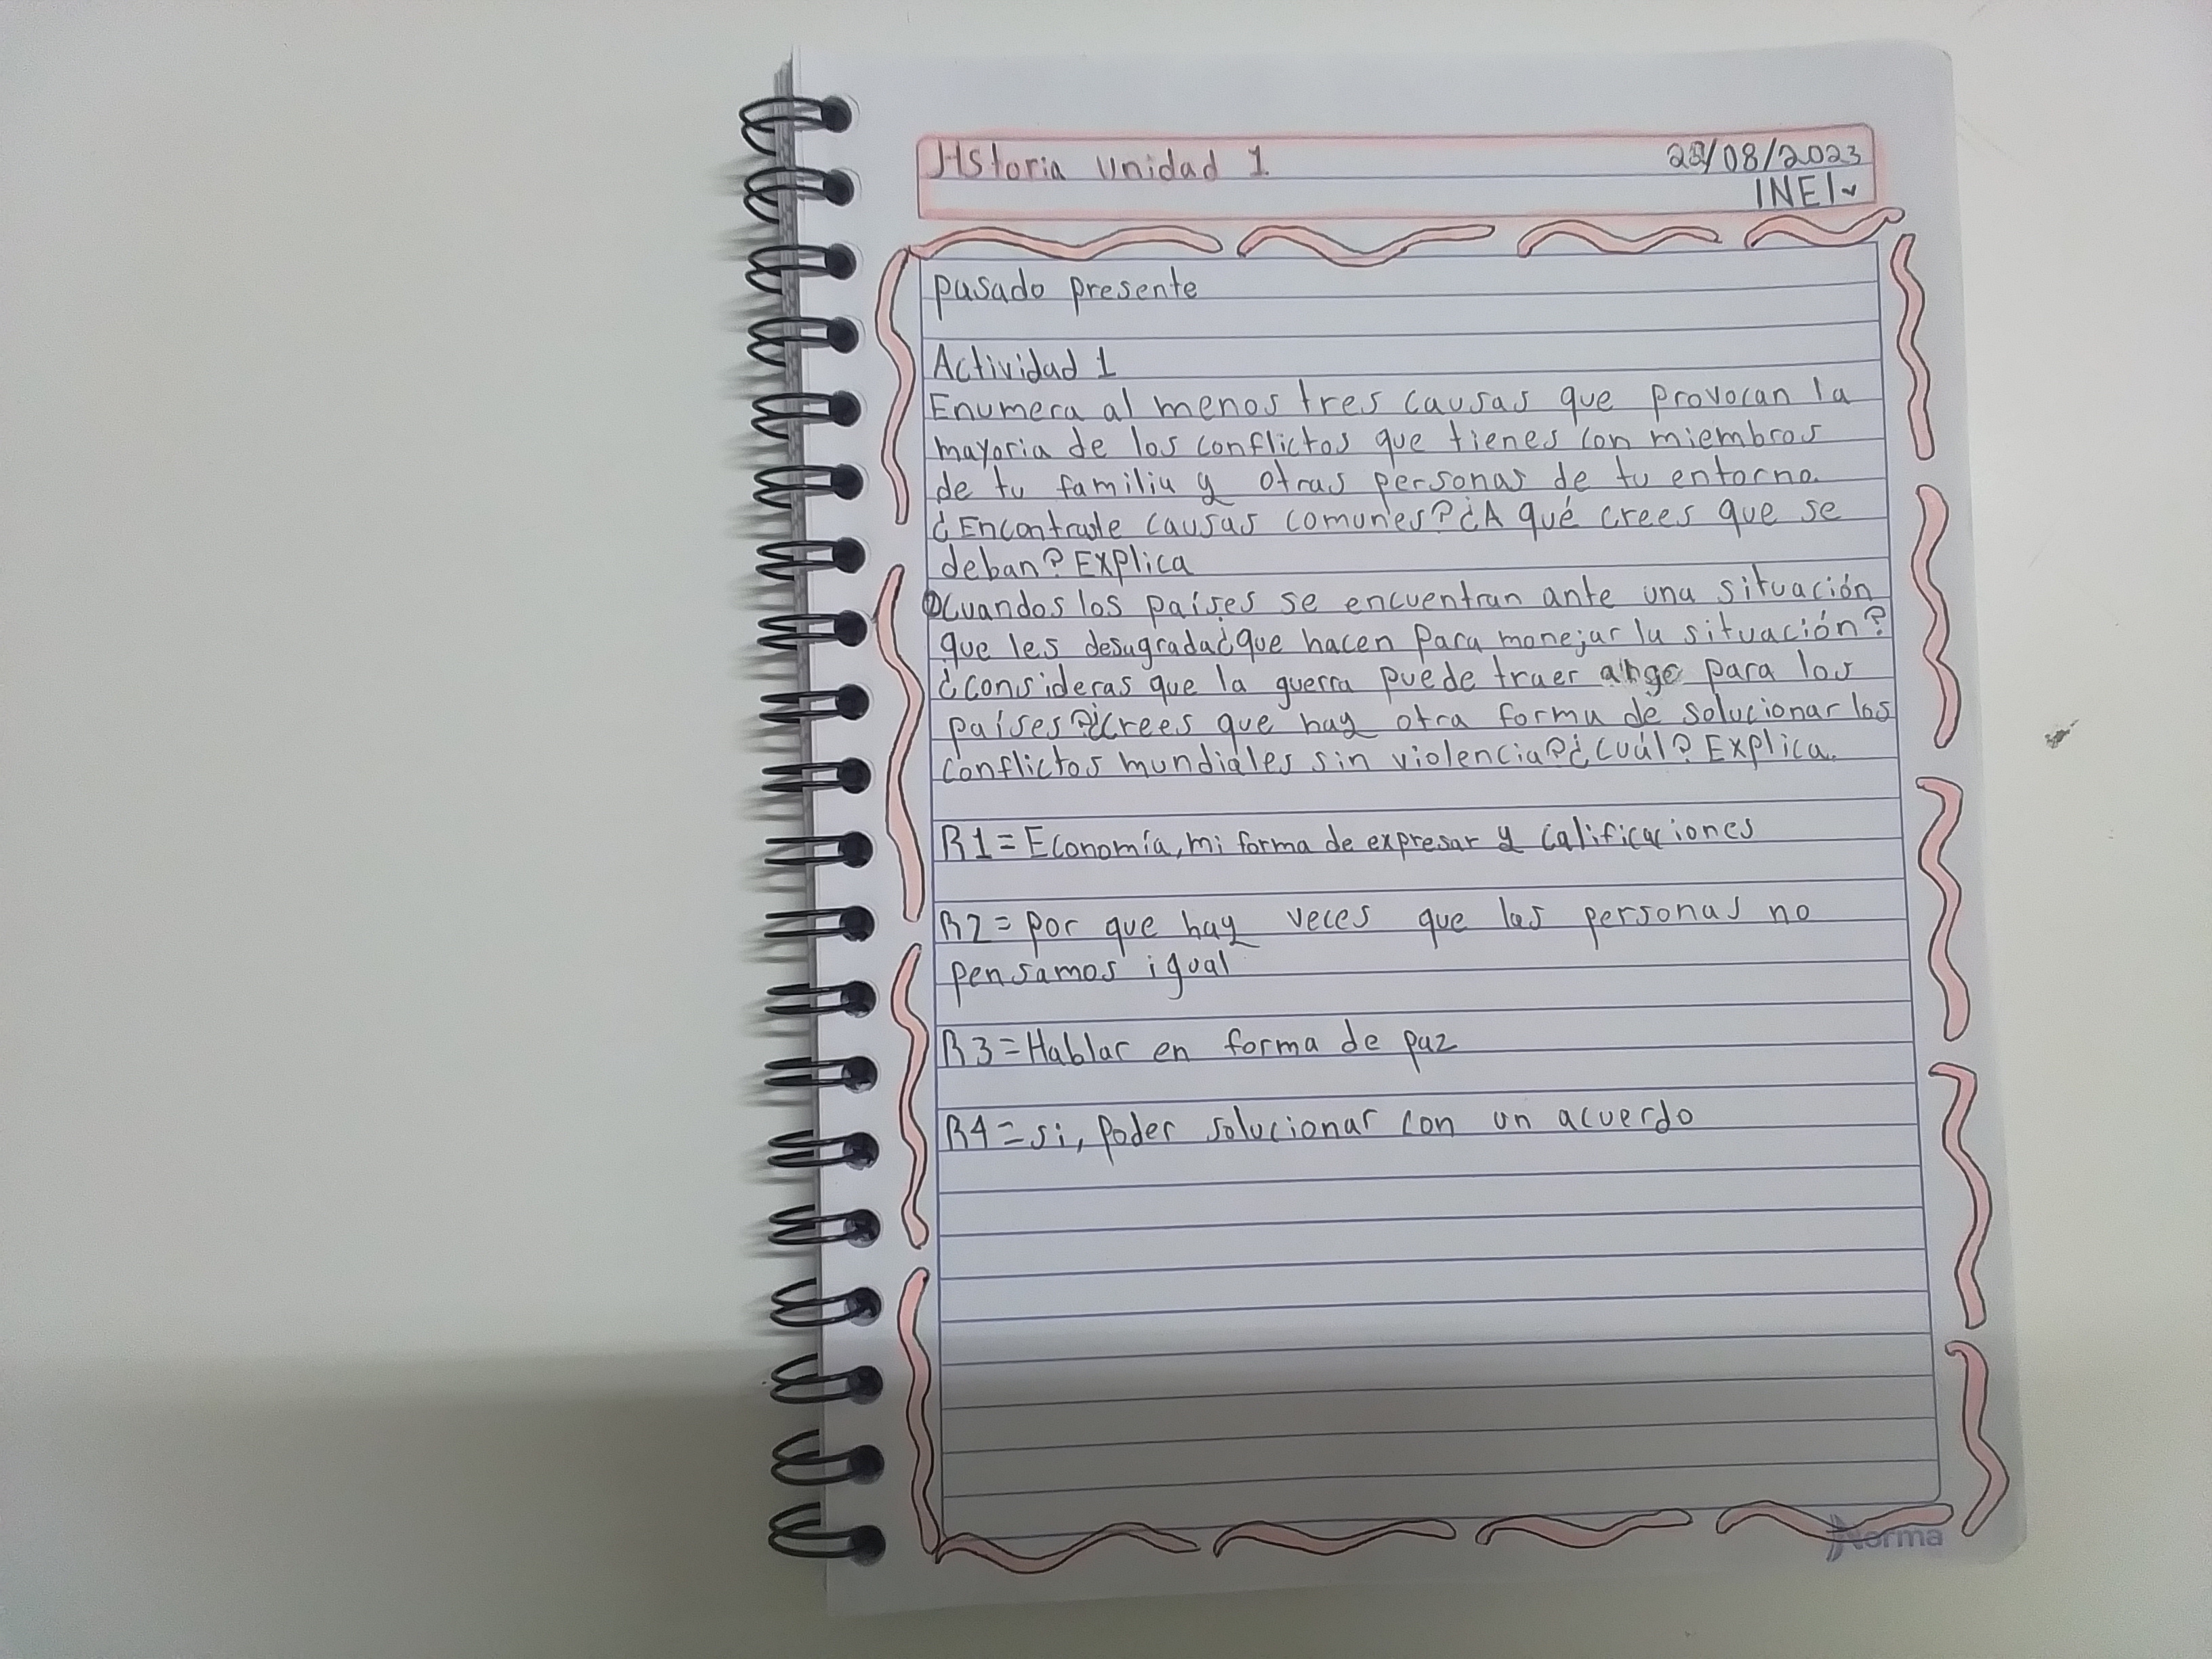 Hstoria Unidad 1
/08/2023
INEI
pasado presente
Actividad 1
Enumera al menos tres causas que provocan la
mayoria de los conflictos que tienes con miembros
de tu familia y otras personas de tu entorno.
¿Encontraste causas comunes? ¿A qué crees que se
deban? Explica
Cuandos los países se encuentran ante una situación
que les desagrada ¿que hacen para monejar la situación?
¿consideras que la guerra puede traer para los
países? ¿crees que hay otra forma de solucionar los
conflictos mundiales sin violencia? ¿Cuál? Explica.
R1= Economía, mi forma de expresar y calificaciones
R2= por que hay veces que las personas no
pensamos igual
R3= Hablar en forma de paz
R4= si, poder solucionar con un acuerdo
Norma